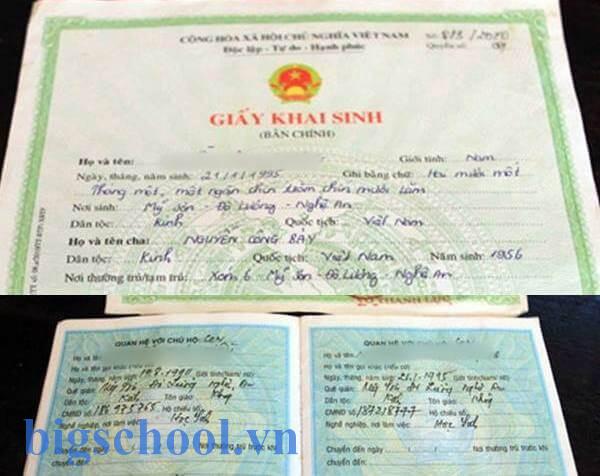 CỘNG HÒA XÃ HỘI CHỦ NGHĨA VIỆT NAM
Độc lập - Tự do - Hạnh phúc
Số: 813/2010
Quyển số:
GIẤY KHAI SINH
(BẢN CHÍNH)
Họ và tên: Giới tính: Nam
Ngày, tháng, năm sinh: 21/1/1995 Ghi bằng chữ: Hai mươi mốt
Tháng một, một ngàn chín trăm chín mươi lăm
Nơi sinh: Mỹ Sơn - Đô Lương - Nghệ An
Dân tộc: Kinh Quốc tịch: Việt Nam
Họ và tên cha: NGUYỄN CÔNG BẢY
Dân tộc: Kinh Quốc tịch: Việt Nam Năm sinh: 1956
Nơi thường trú/tạm trú: Xóm 6 Mỹ Sơn - Đô Lương - Nghệ An
QUAN HỆ VỚI CHỦ HỘ: Con
Họ và tên:
Họ và tên gọi khác (nếu có):
Ngày, tháng, năm sinh: Giới tính(Nam/ nữ)
Quê quán: Đô Lương Nghệ An
Dân tộc: Kinh Tôn giáo: Không
CMND số: Hộ chiếu số:
Nghề nghiệp, nơi làm việc: Học sinh
Chuyển đến ngày Nơi thường trú trước khi
chuyển đến:
QUAN HỆ VỚI CHỦ HỘ: Con
Họ và tên:
Họ và tên gọi khác (nếu có):
Ngày, tháng, năm sinh: 21.1.1995 Giới tính(Nam/ nữ)
Quê quán: Đô Lương Nghệ An
Dân tộc: Kinh Tôn giáo: Không
CMND số: Hộ chiếu số:
Nghề nghiệp, nơi làm việc: Học sinh
Chuyển đến ngày Nơi thường trú trước khi
chuyển đến:
bigschool.vn